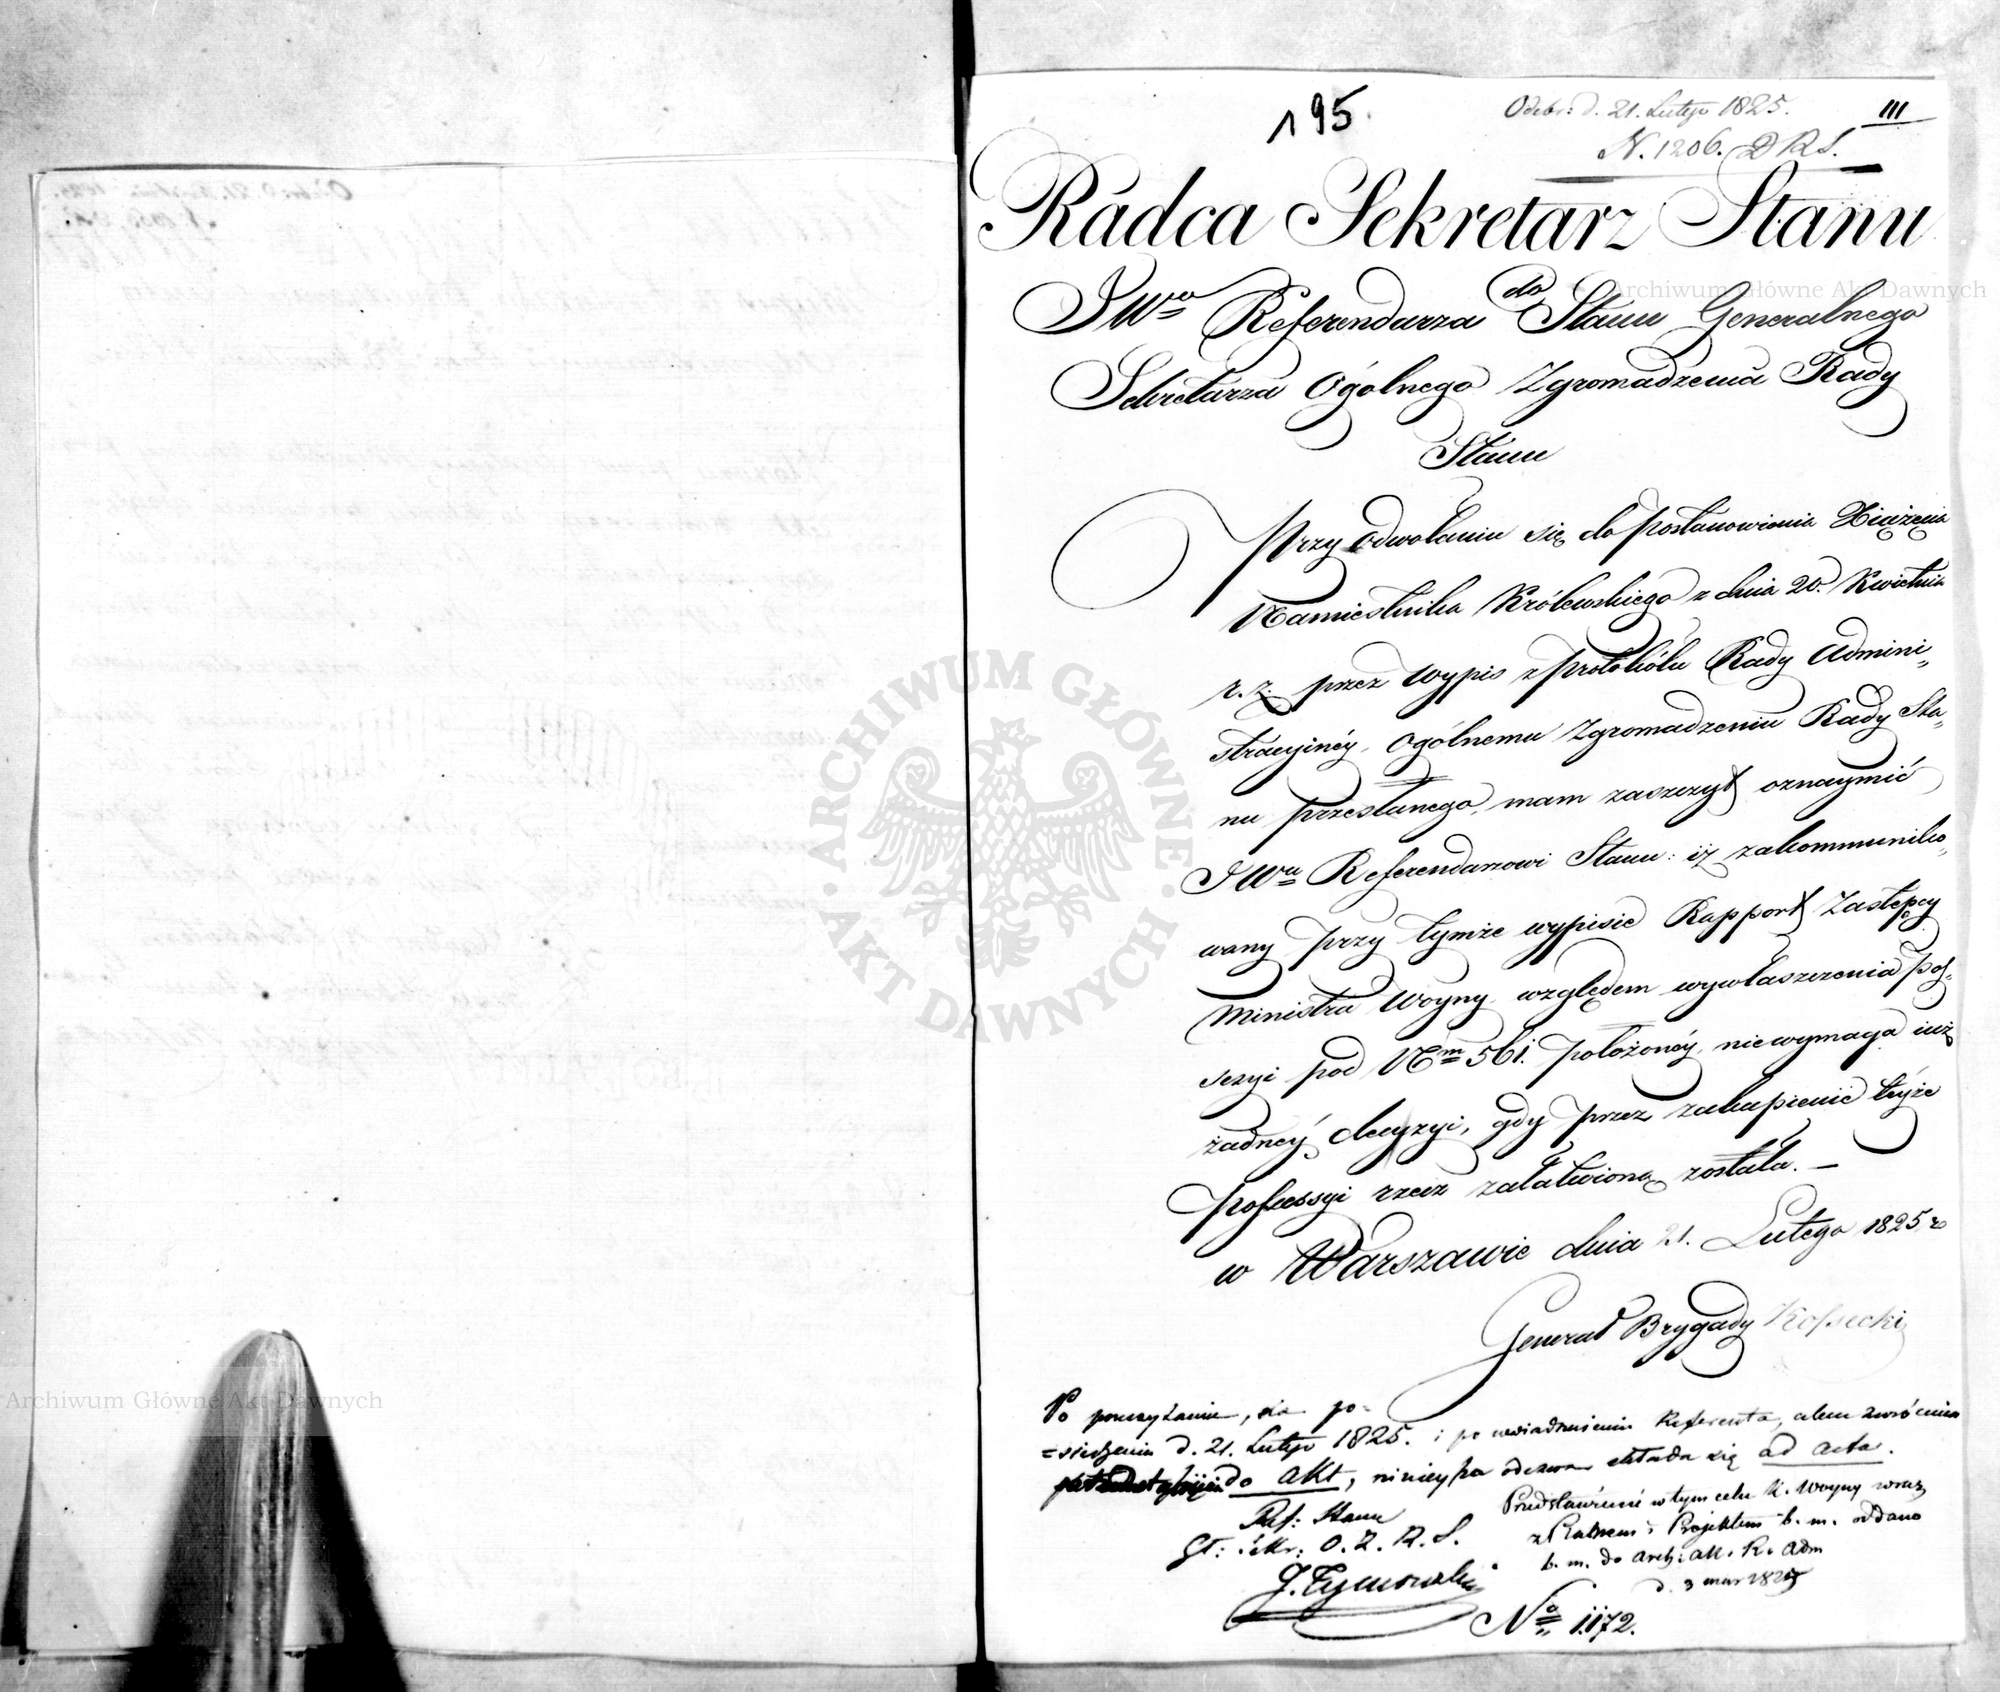 195.
Odebr: d. 21. Lutego 1825.
III
N. 1206. D R S.
Radca Sekretarz Stanu
JWo Referendarza do Stanu Generalnego
Sekretarza Ogólnego Zgromadzenia Rady
Stanu
Przy odwołaniu się do postanowienia Xiążęcia
Namiestnika Królewskiego z dnia 20. Kwietnia
r. z. przez wypis z protokółu Rady Admini„
stracyinéy, Ogólnemu Zgromadzeniu Rady Sta„
nu przesłanego, mam zaszczyt oznaymić
JWu Referendarzowi Stanu: iż zakommuniko„
wany przy tymże wypisie Rapport Zastępcy
Ministra Woyny względem wywłaszczenia pos„
sezyi pod Nrm 561. położonéy, niewymaga iuż
żadnéy decyzyi, gdy przez zakupienie téyże
possessyi rzecz załatwioną została. —
w Warszawie dnia 21. Lutego 1825 r
Generał Brygady Kossecki
Po przeczytaniu, na po-
=siedzeniu d. 21. Lutego 1825. i po uwiadomieniu Referenta, celem zwrócenia
do akt, ninieysza odezwa składa się ad acta.
Ref: Stanu
Gł: Sekr: O. Z. R. S.
J. Tymowski
Przedstawienie w tym celu K. Woyny wraz
z Planem i Projektem b. m. oddano
b. m. do arch: akt. R. Adm
d. 3 mar 1825
No 1172.
Archiwum Główne Akt Dawnych
Archiwum Główne Akt Dawnych
ARCHIWUM GŁÓWNE
AKT DAWNYCH